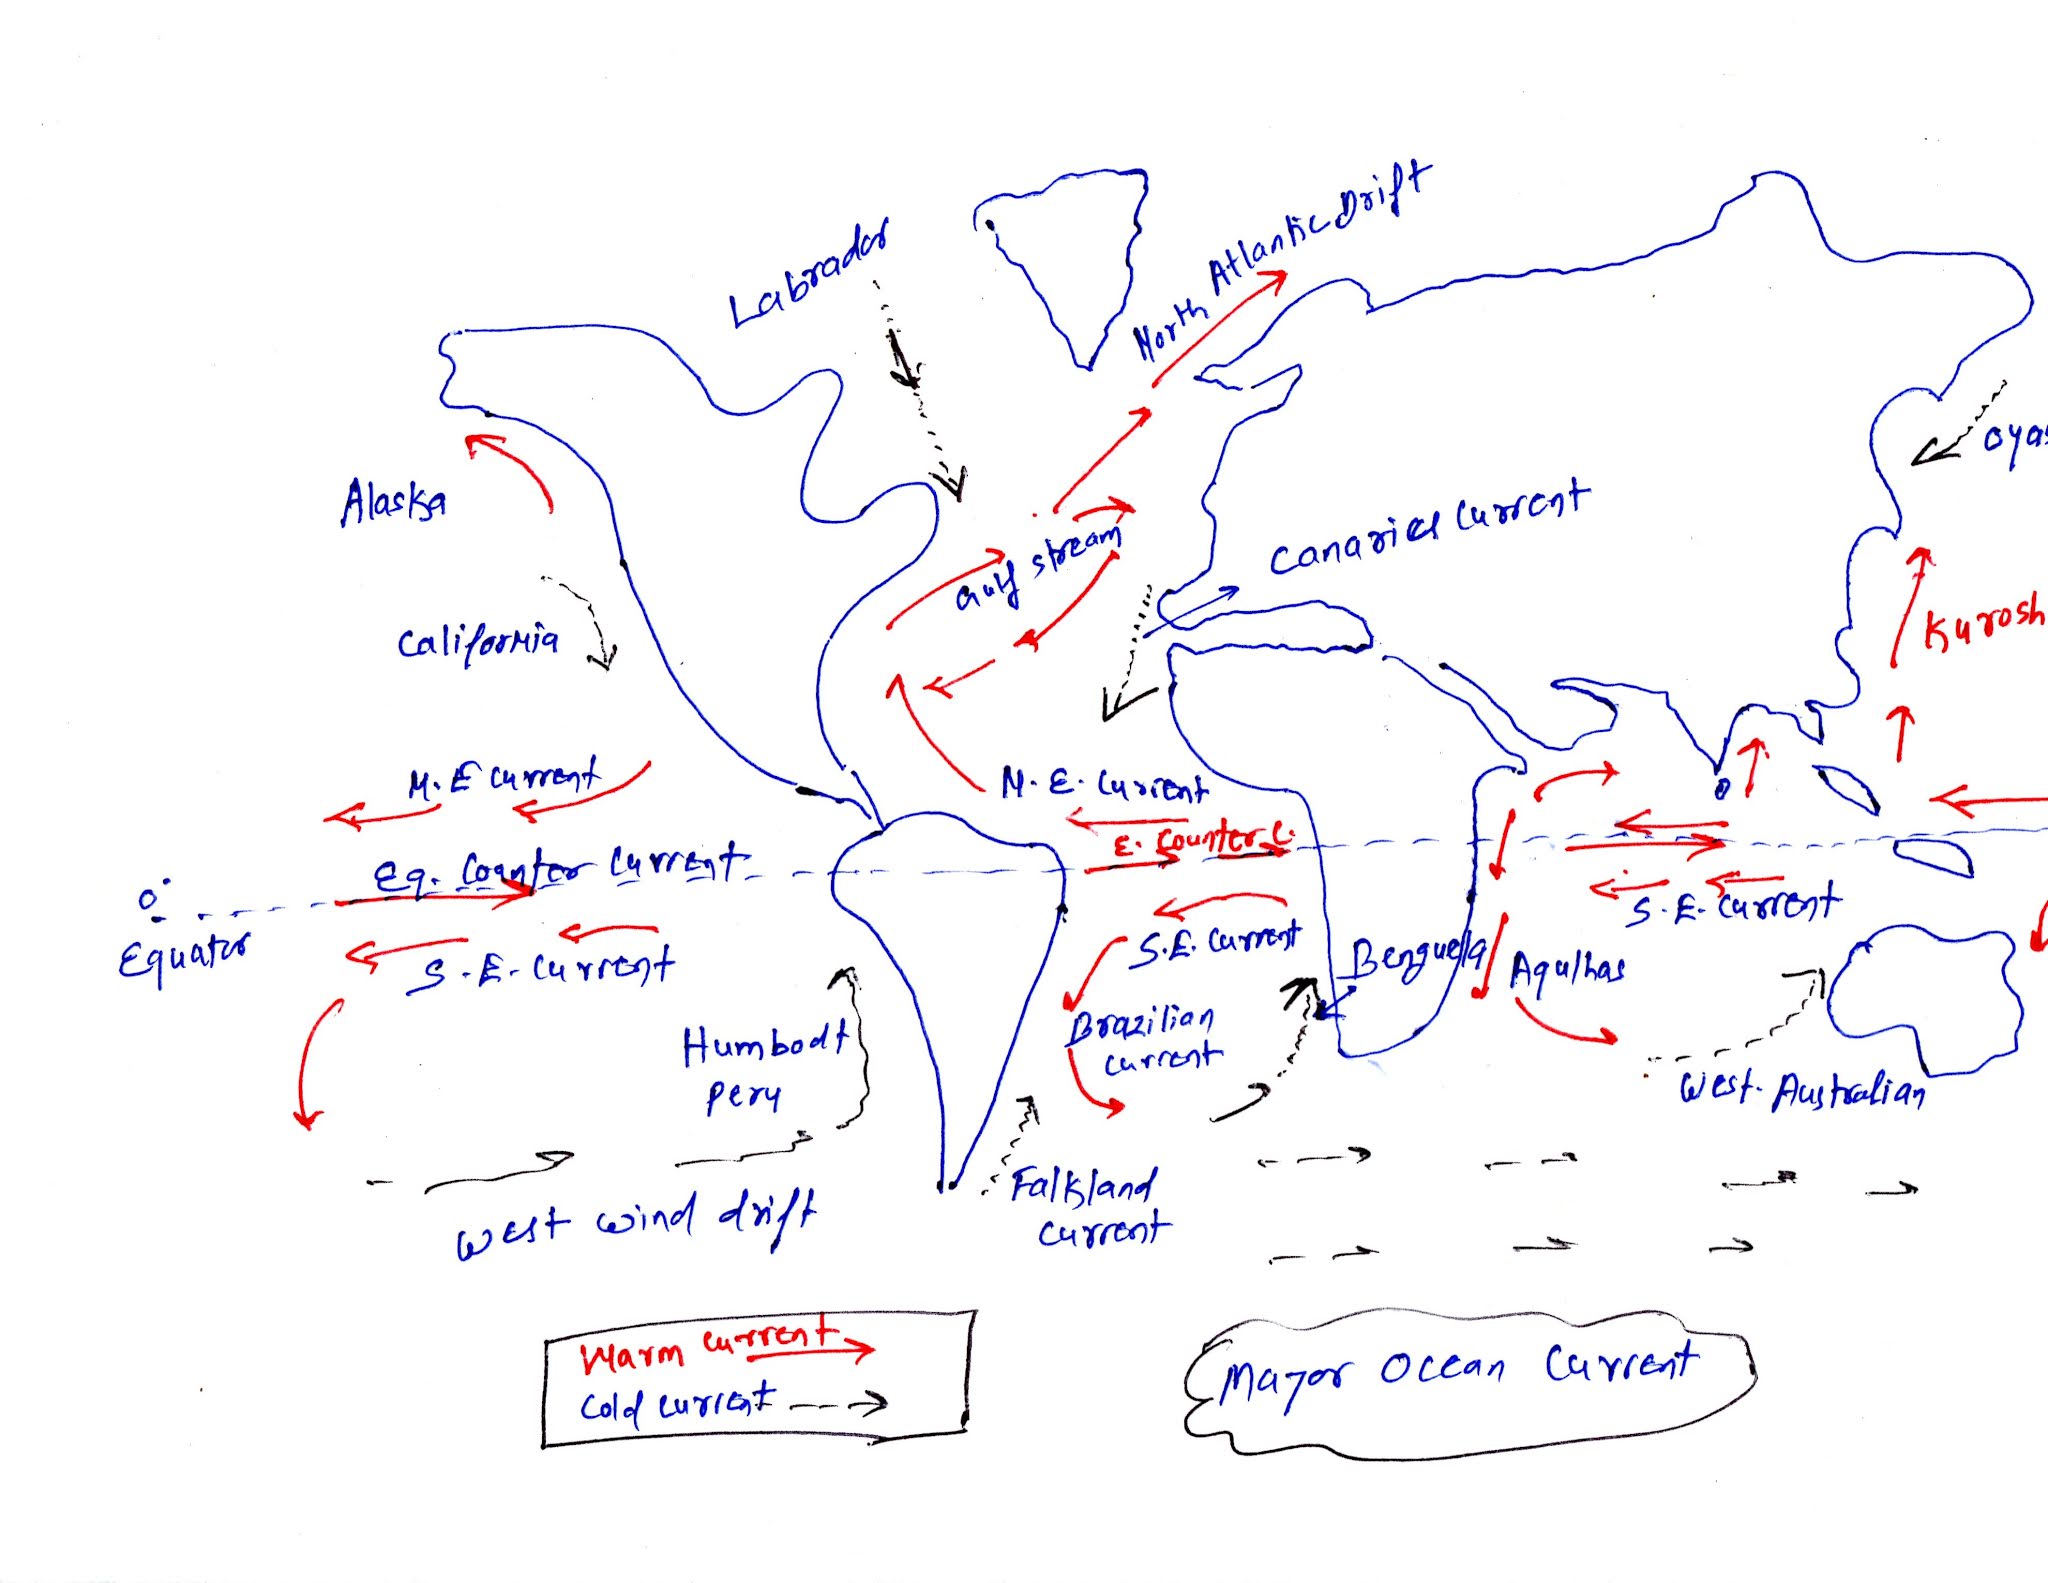 Labrador
North Atlantic Drift
Alaska
Oyas
Canaries current
Gulf stream
California
Kurosh
N.E current
N.E. current
E. Counter C.
Eq. Counter Current
0°
Equator
S.E. current
S.E. current
S.E. current
Benguella
Agulhas
Humbodt
Peru
Brazilian
current
West. Australian
West wind drift
Falkland
current
Warm current
Cold current
Major Ocean Current